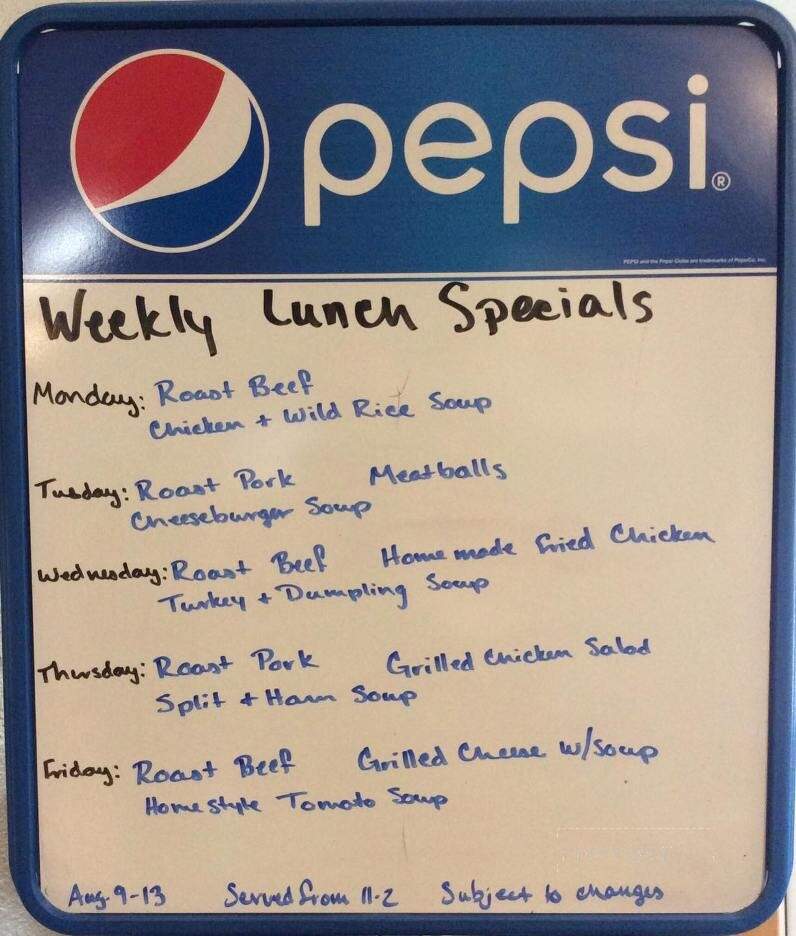 pepsi®
PEPSI and the Pepsi Globe are trademarks of PepsiCo, Inc.
Weekly Lunch Specials
Monday: Roast Beef
Chicken + Wild Rice Soup
Tuesday: Roast Pork Meatballs
Cheeseburger Soup
Wednesday: Roast Beef Homemade Fried Chicken
Turkey + Dumpling Soup
Thursday: Roast Pork Grilled Chicken Salad
Split + Ham Soup
Friday: Roast Beef Grilled Cheese w/soup
Homestyle Tomato Soup
Aug. 9-13 Served from 11-2 Subject to changes